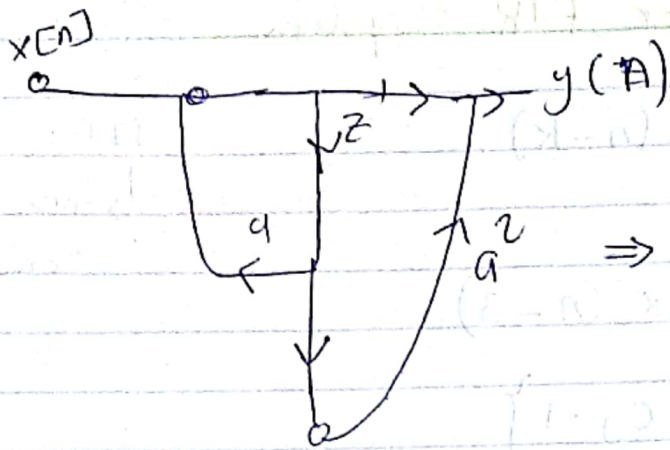 x[n]
y(A)
z
a
a²
⇒